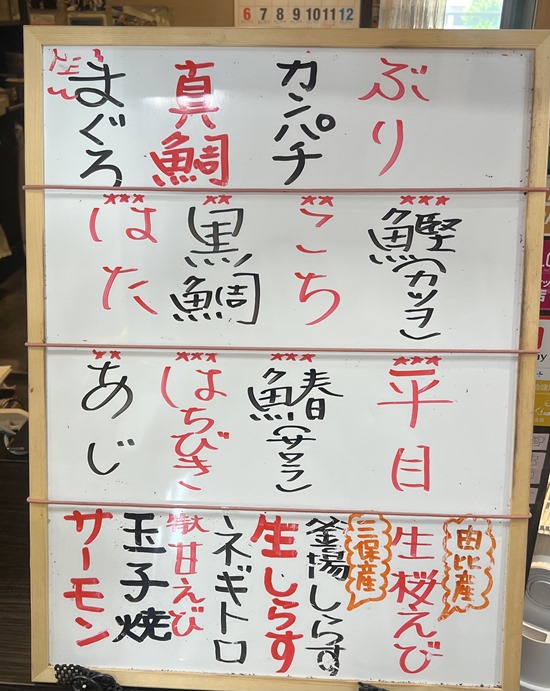 6 7 8 9 10 11 12
ぶり
カンパチ
真鯛
まぐろ
★★★
鰹(カツヲ)
★★
こち
★★
黒鯛
★★★
はた
★★★
平目
★★★
鰆(サワラ)
★★★
はちびき
★★
あじ
由比産
生桜えび
三保産
釜揚しらす
生しらす
ネギトロ
特大甘えび
玉子焼
サーモン